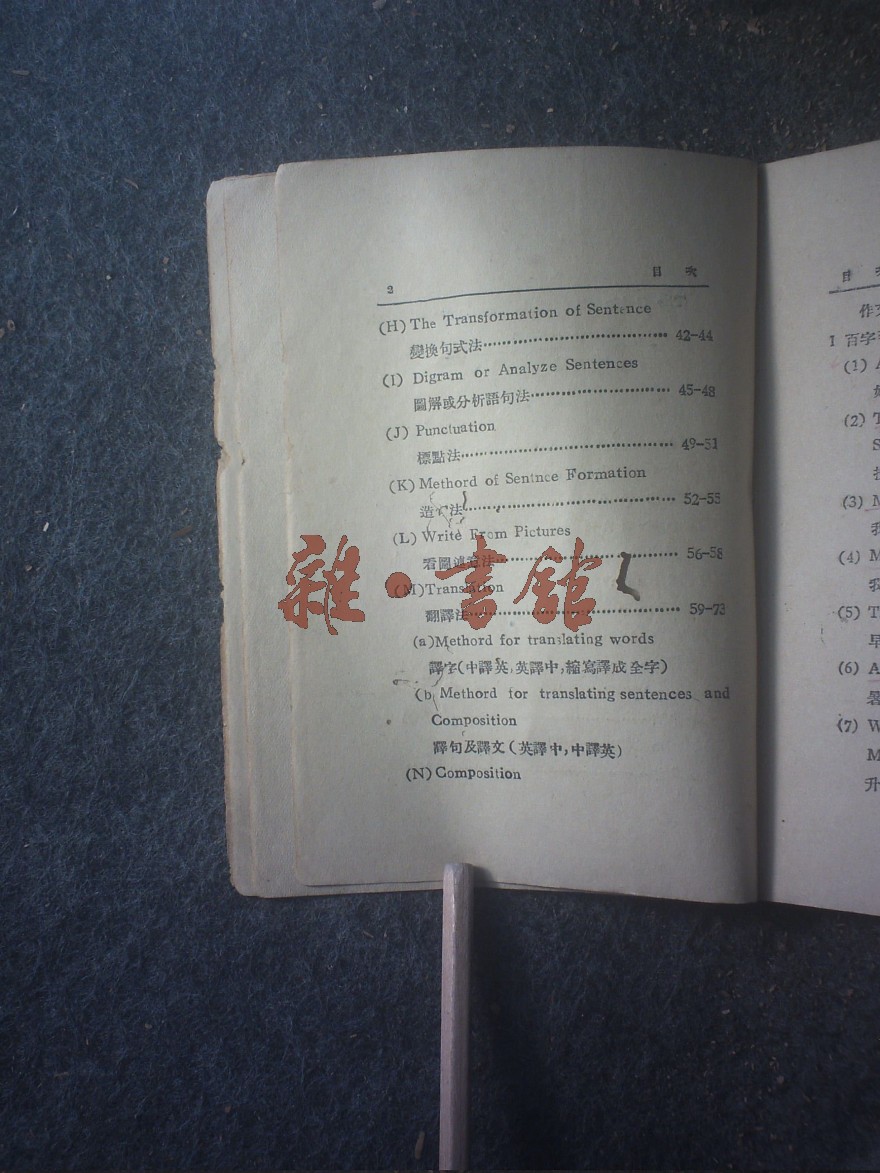 2 目 次
(H) The Transformation of Sentence
變換句式法 42-44
(I) Digram or Analyze Sentences
圖解或分析語句法 45-48
(J) Punctuation
標點法 49-51
(K) Methord of Sentnce Formation
造句法 52-55
(L) Write From Pictures
看圖述意法 56-58
(M) Translation
翻譯法 59-73
(a) Methord for translating words
譯字(中譯英,英譯中,縮寫譯成全字)
(b Methord for translating sentences and
Composition
譯句及譯文(英譯中,中譯英)
(N) Composition
雜·書館
目
I 百字
(1) A
(2) T
S
(3) M
我
(4) M
我
(5) T
早
(6) A
暑
(7) W
M
升